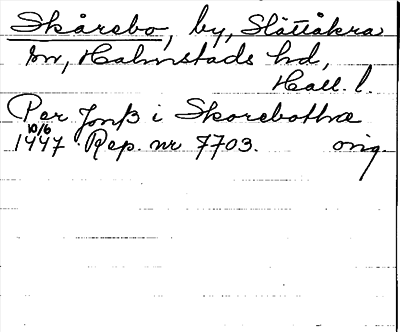 Skårebo, by, Slättåkra
sn, Halmstads hd,
Hall. l.
Per Jonß i Skorebothæ
10/6
1447. Rep. nr 7703. orig.